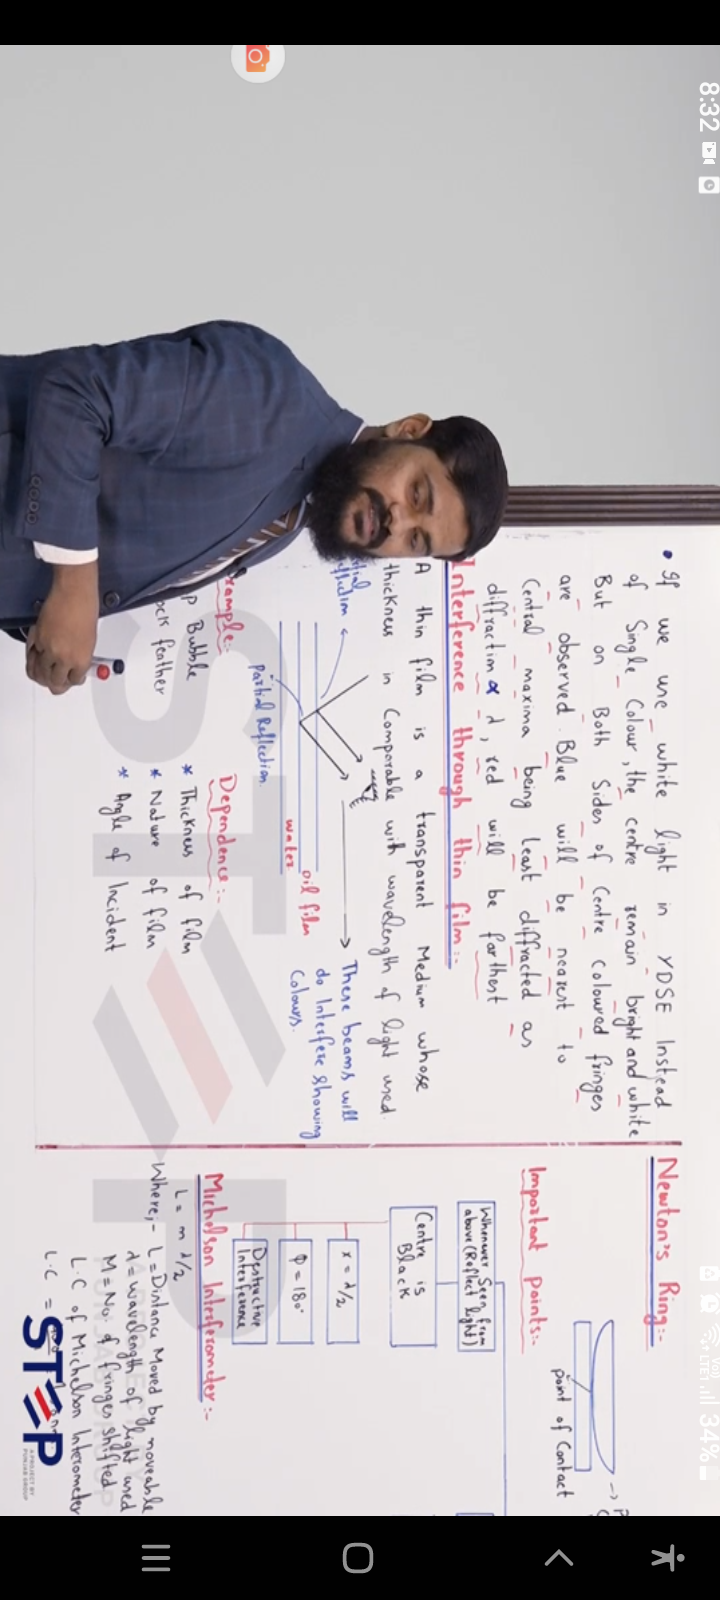 8:32
• If we use white light in YDSE Instead
of Single Colour, the centre remain bright and white
But on Both Sides of Centre coloured fringes
are observed. Blue will be nearest to
Central maxima being least diffracted as
diffraction ∝ λ, red will be farthest
Interference through thin film:-
A thin film is a transparent Medium whose
thickness in Comparable with wavelength of light used.
These beams will
do Interfere showing
Colours.
oil film
water
Partial Reflection.
P Bubble
feather
Dependence:-
* Thickness of film
* Nature of film
* Angle of Incident
Newton's Ring:-
Point of Contact
Important Points:-
Whenever Seen from
above (Reflect light)
Centre is
Black
x = λ/2
φ = 180°
Destructive
Interference
Michelson Interferometer:-
L = m λ/2
Where;- L = Distance Moved by moveable
λ = wavelength of light used
M = No. of fringes shifted
L.C of Michelson Interometer
L.C =
STEP
A PROJECT BY
PUNJAB GROUP
Vo))
LTE1
34%